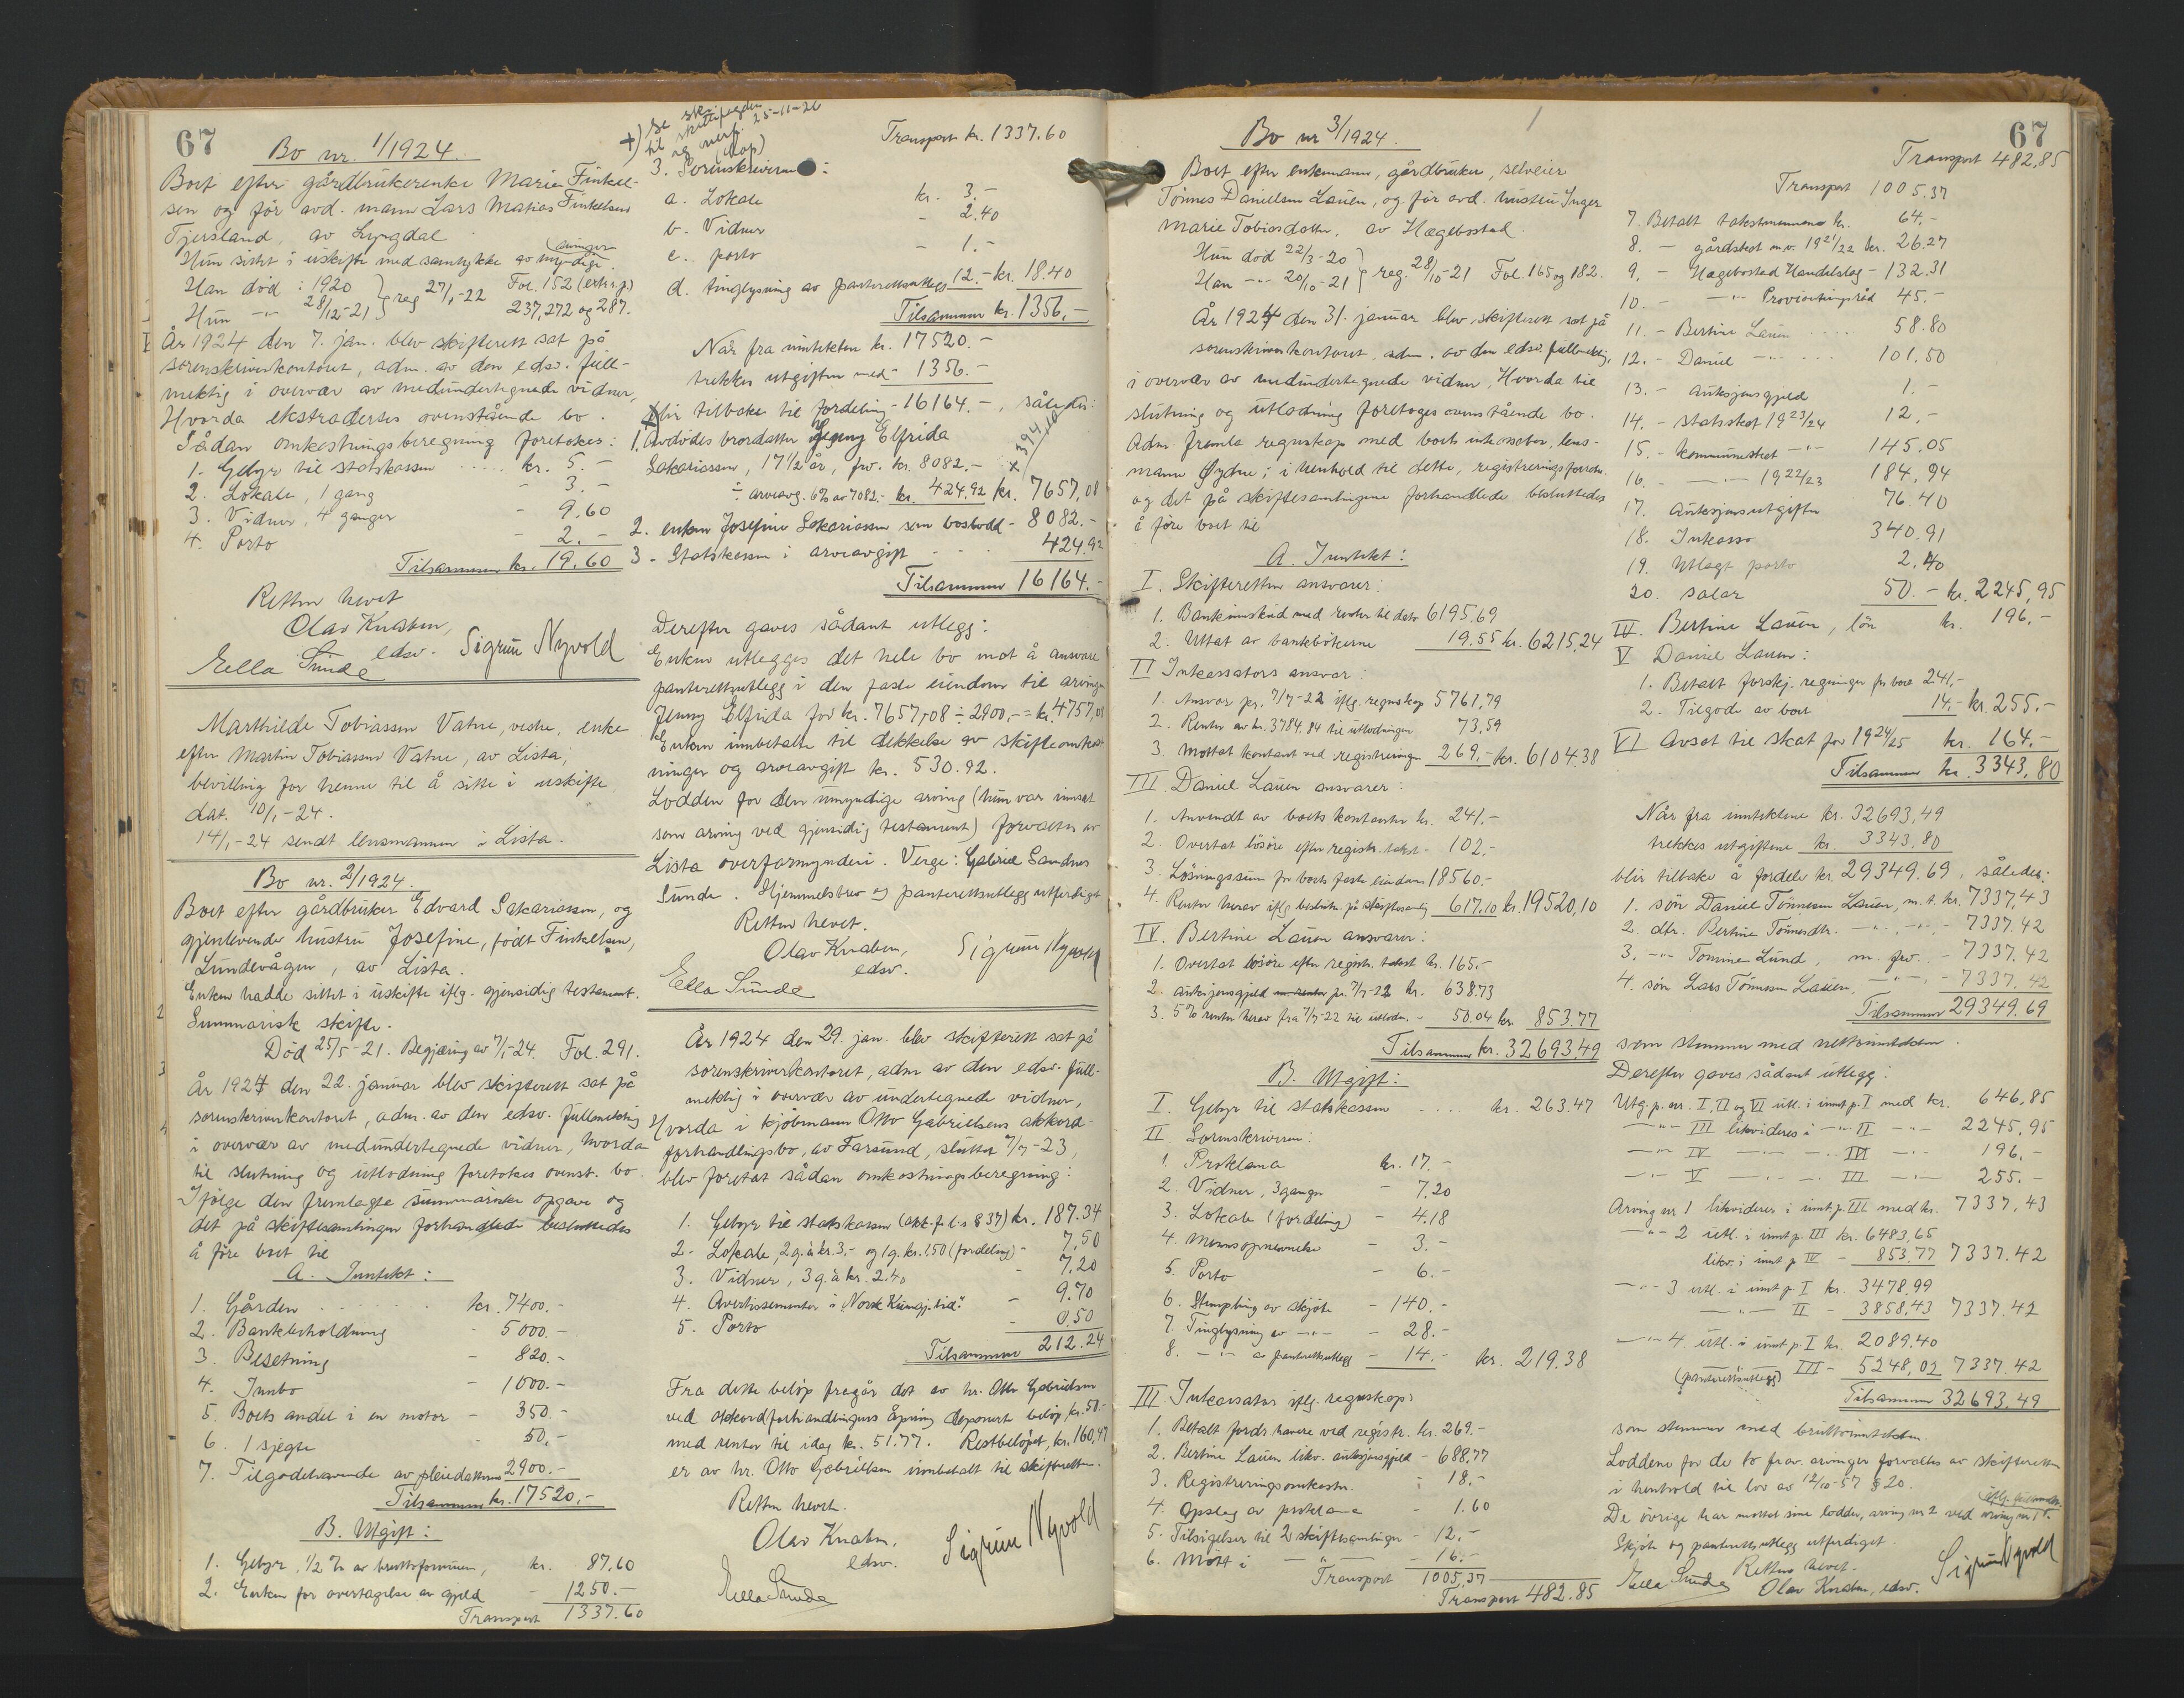 67
Bo nr. 1/1924.
Boet efter gårdbrukerenke Marie Finkel-
sen og før avd. mann Lars Matias Finkelsen
Tjersland, av Lyngdal
(arvinger
Hun sittet i uskifte med samtykke av myndige.
Han död : 1920 } reg 27/1-22 Fol. 152 (extr.p.)
Hun -"- 28/12-21 } 237, 272 og 287.
År 1924 den 7. jan. blev skifterett sat på
sorenskriverkontoret, adm. av den edsv. full-
mektig i overvær av medundertegnede vidner,
Hvorda ekstraderes ovenstående bo.
Sådan omkostningsberegning foretokes:
1. Gebyr til statskassen ..... kr. 5.-
2. Lokale, 1 gang - 3.-
3. Vidner, 4 ganger - 9.60
4. Porto - 2.-
Tilsammen kr. 19.60
Retten hevet
Olav Knaben,
edsv. Sigrun Nyvold
Ella Sunde
Marthilde Tobiassen Vatne, vestre, enke
efter Martin Tobiassen Vatne, av Lista,
bevilling for henne til å sitte i uskifte
dat. 10/1-24.
14/1-24 sendt lensmannen i Lista.
Bo nr. 2/1924.
Boet efter gårdbruker Edvard Sakariassen, og
gjenlevende hustru Josefine, født Finkelsen,
Lundevågen, av Lista.
Enken hadde sittet i uskifte iflg. gjensidig testament.
Summarisk skifte.
Död 25/5-21. Begjæring av 7/1-24. Fol. 291.
År 1924 den 22. januar blev skifterett sat på
sorenskriverkontoret, adm. av den edsv. fullmektig
i overvær av medundertegnede vidner, hvorda
til slutning og utlodning foretokes ovenst. bo.
Ifölge den fremlagte summariske opgave og
det på skiftesamlingen forhandlede besluttedes
å före boet til
A. Inntekt:
1. Gården ...... kr. 7400.-
2. Bankbeholdning - 5000.-
3. Besetning - 820.-
4. Innbo - 1000.-
5. Boets andel i en motor - 350.-
6. 1 sjegte - 50.-
7. Tilgodehavende av pleiedatteren 2900.-
Tilsammen kr. 17520.-
B. Utgift:
1. Gebyr, 1/2 % av bruttoformuen, kr. 87.60
2. Enken for overtagelse av gjeld - 1250.-
Transport 1337.60
+) Se skr.
til skattefogden
og 25-11-26
Transport kr. 1337.60
3. Sorenskriveren :
a. Lokale kr. 3.-
b. Vidner - 2.40
c. porto - 1.-
d. tinglysning av panterettsutlegg 12.- kr. 18.40
Tilsammen kr. 1356.-
Når fra inntekten kr. 17520.-
trekkes utgiften med - 1356.-
blir tilbake til fordeling - 16164.-, således:
1. Avdödes brordatter Jenny Elfrida
Sakariassen, 17 1/2 år, fw. kr. 8082.-
÷ arveavg. 6% av 7082.- kr. 424.92 kr. 7657,08
2. enken Josefine Sakariassen som boslodd - 8082.-
3 - Statskassen i arveavgift - 424.92
Tilsammen 16164.-
Derefter gaves sådant utlegg:
Enken utlegges det hele bo mot å ansvare
panterettsutlegg i den faste eiendom til arvingen
Jenny Elfrida for kr. 7657,08 ÷ 2900,- = kr. 4757,08
Enken innbetalte til dekkelse av skifteomkost-
ninger og arveavgift kr. 530.92.
Lodden for den umyndige arving (hun var innsat
som arving ved gjensidig testament) forvaltes av
Lista overformynderi. Verge: Gabriel Sandnes
Sunde. Hjemmelsbrev og panterettsutlegg utferdiget
Retten hevet.
Olav Knaben,
edsv. Sigrun Nyvold
Ella Sunde
År 1924 den 29. jan. blev skifterett sat på
sorenskriverkontoret, adm av den edsv. full-
mektig i overvær av undertegnede vidner,
Hvorda i kjöbmann Otto Gabrielsens akkord-
forhandlingsbo, av Farsund, sluttet 7/7-23,
blev foretat sådan omkostningsberegning:
1. Gebyr til statskassen (akk.f.l.s § 37) kr. 187.34
2. Lokale, 2 g. à kr. 3,- og 1 g. kr. 1,50 (fordeling) - 7,50
3. Vidner, 3 g. à kr. 2.40 - 7.20
4. Avertissementer i "Norsk Kunngj.tid." - 9.70
5. Porto - 0.50
Tilsammen 212.24
Fra dette belöp fragår det av hr. Otto Gabrielsen
ved akkordforhandlingens åpning deponert belöp kr. 50.-
med renter til idag kr. 51.77. Restbelöpet, kr. 160,47
er av hr. Otto Gabrielsen innbetalt til skifteretten.
Retten hevet.
Olav Knaben,
edsv. Sigrun Nyvold
Ella Sunde
67
Bo nr 3/1924.
Boet efter enkemann, gårdbruker, selveier
Tönnes Daniellsen Lauen, og før avd. hustru Inger
Marie Tobiasdatter, av Hægebostad.
Hun död 22/3-20 } reg. 28/10-21 Fol. 165 og 182.
Han -"- 20/10-21 }
År 1924 den 31. januar blev skifterett sat på
sorenskriverkontoret, adm. av den edsv. fullmektig,
i overvær av medundertegnede vidner, Hvorda til
slutning og utlodning foretoges ovenstående bo.
Adm. fremla regnskap med boets inkassator, lens-
mann Øydne; i henhold til dette, registreringsforretn.
og det på skiftesamlingene forhandlede besluttedes
å före boet til
A. Inntekt:
I. Skifteretten ansvarer:
1. Bankinnskud med renter til dato 6195,69
2. Uttat av bankbökerne 19.55 kr. 6215,24
II Inkassators ansvar:
1. Ansvar pr. 7/7-22 iflg. regnskap 5761,79
2. Renter av kr. 3784.84 til utlodningen 73,59
3. Mottat kontant ved registreringen 269.- kr. 6104.38
III. Daniel Lauen ansvarer:
1. Anvendt av boets kontanter kr. 241.-
2. Overtat lösöre efter registr. takst - 102.-
3. Lösningssum for boets faste eiendom 18560.-
4. Renter herav iflg. beslutn. på skiftesamling 617.10 kr. 19520,10
IV. Bertine Lauen ansvarer:
1. Overtat lösöre efter registr. takst kr. 165.-
2. auksjonsgjeld pr. 7/7-22 kr. 638.73
3. 5 % renter herav fra 7/7-22 til utlodn. - 50.04 kr. 853.77
Tilsammen kr. 32693.49
B. Utgift:
I. Gebyr til statskassen ... kr. 263.47
II. Sorenskriveren:
1. Proklama kr. 17.-
2. Vidner, 3 ganger - 7.20
3. Lokale (fordeling) - 4.18
4. Mannsopnevnelse - 3.-
5. Porto - 6.-
6. Stempling av skjöte - 140.-
7. Tinglysning av -"- - 28.-
8. -"- av panterettsutlegg - 14.- kr. 219.38
III. Inkassator iflg. regnskap:
1. Betalt fordr.havere ved registr. kr. 269.-
2. Bertine Lauen likv. auksjonsgjeld - 688,77
3. Registreringsomkostn. - 18.-
4. Opslag av proklama - 1.60
5. Tilsigelser til 2 skiftesamlinger - 12.-
6. Mött i -"- - 16.-
Transport 1005,37
Transport 482.85
Transport 482,85
Transport 1005.37
7. Betalt takstmennene kr. 64.-
8. - gårdskat m.v. 1921/22 kr. 26.27
9. - Hægebostad Handelslag - 132.31
10. - -"- Provianteringsråd 45.-
11. - Bertine Lauen .... 58.80
12. - Daniel -"- .... 101.50
13. - auksjonsgjeld 1.-
14. - statsskat 1923/24 12.-
15. - kommuneskat -"- 145.05
16. - -"- 1922/23 184.94
17. Auksjonsutgifter 76.40
18. Inkasso 340.91
19. Utlagt porto 2.40
20. Salær 50.- kr. 2245,95
IV. Bertine Lauen, lön kr. 196.-
V Daniel Lauen:
1. Betalt forskj. regninger for boet 241,-
2. Tilgode av boet 14,- kr. 255.-
VI Avsat til skat for 1924/25 kr. 164.-
Tilsammen kr. 3343,80
Når fra inntektene kr. 32693,49
trekkes utgiftene kr. 3343.80
blir tilbake å fordele kr. 29349.69, således:
1. sön Daniel Tönnessen Lauen, m.t. kr. 7337,43
2. dtr. Bertine Tönnesdtr. -"-, -"- - 7337.42
3. -"- Tomine Lund, m. fw. - 7337.42
4. sön Lars Tönnessen Lauen, -"- - 7337.42
Tilsammen 29349.69
som stemmer med nettoinntekten.
Derefter gaves sådant utlegg:
Utg. p. nr. I, II og VI utl. i innt. p. I med kr. 646,85
-"- III likvideres i -"- II -"- 2245,95
-"- IV -"- -"- III -"- 196.-
-"- V -"- III -"- 255.-
Arving nr 1 likviderer i innt. p. III med kr. 7337,43
-"- 2 utl. i innt p. III kr. 6483,65
likv. i innt p IV - 853.77 7337.42
-"- 3 utl. i innt p. I kr. 3478.99
-"- II - 3858,43 7337.42
-"- 4 utl. i innt p. I kr. 2089.40
(panterettsutlegg) III - 5248,02 7337.42
Tilsammen 32693.49
som stemmer med bruttoinntekten.
Loddene for de to frav. arvinger forvaltes av skifteretten
i henhold til lov av 12/10-57 § 20.
De övrige har mottat sine lodder, arving nr 2 ved arving nr 1
Skjöte og panterettsutlegg utferdiget.
Retten hevet.
Ella Sunde Olav Knaben, edsv. Sigrun Nyvold